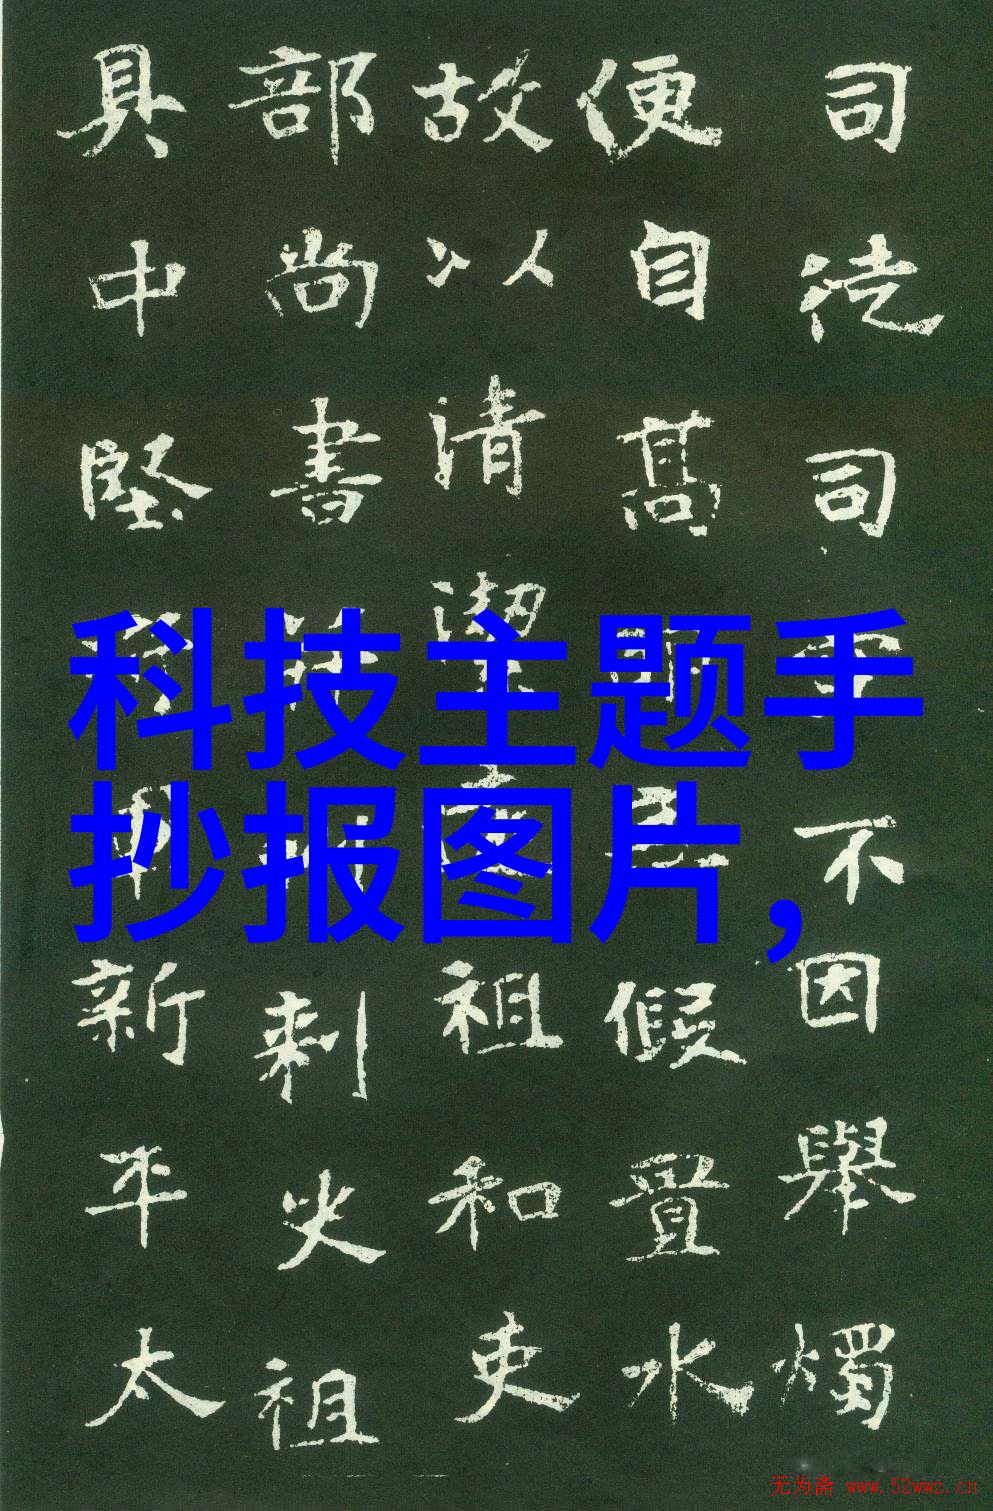 司徒司不因舉燭
便自高假置水
故以清潔祖和吏
部尚書刺史祖
具中堅新平太
科技主题手
抄报图片，
无为斋 www.52wwz.cn